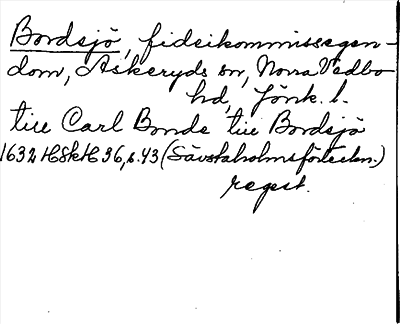 Bordsjö, fideikommissegen-
dom, Askeryds sn, Norra Vedbo
hd, Jönk. l.
till Carl Bonde till Bordsjö
1632 HSkH 36, s. 43 (Säfstaholmsförteckn.)
regest.